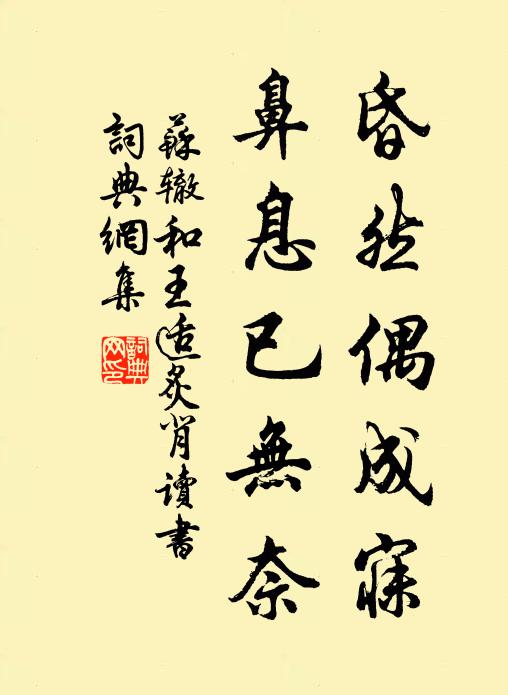 昏然偶成寐
鼻息已無奈
蘇轍和王适炙背讀書
詞典網集
詞典網印